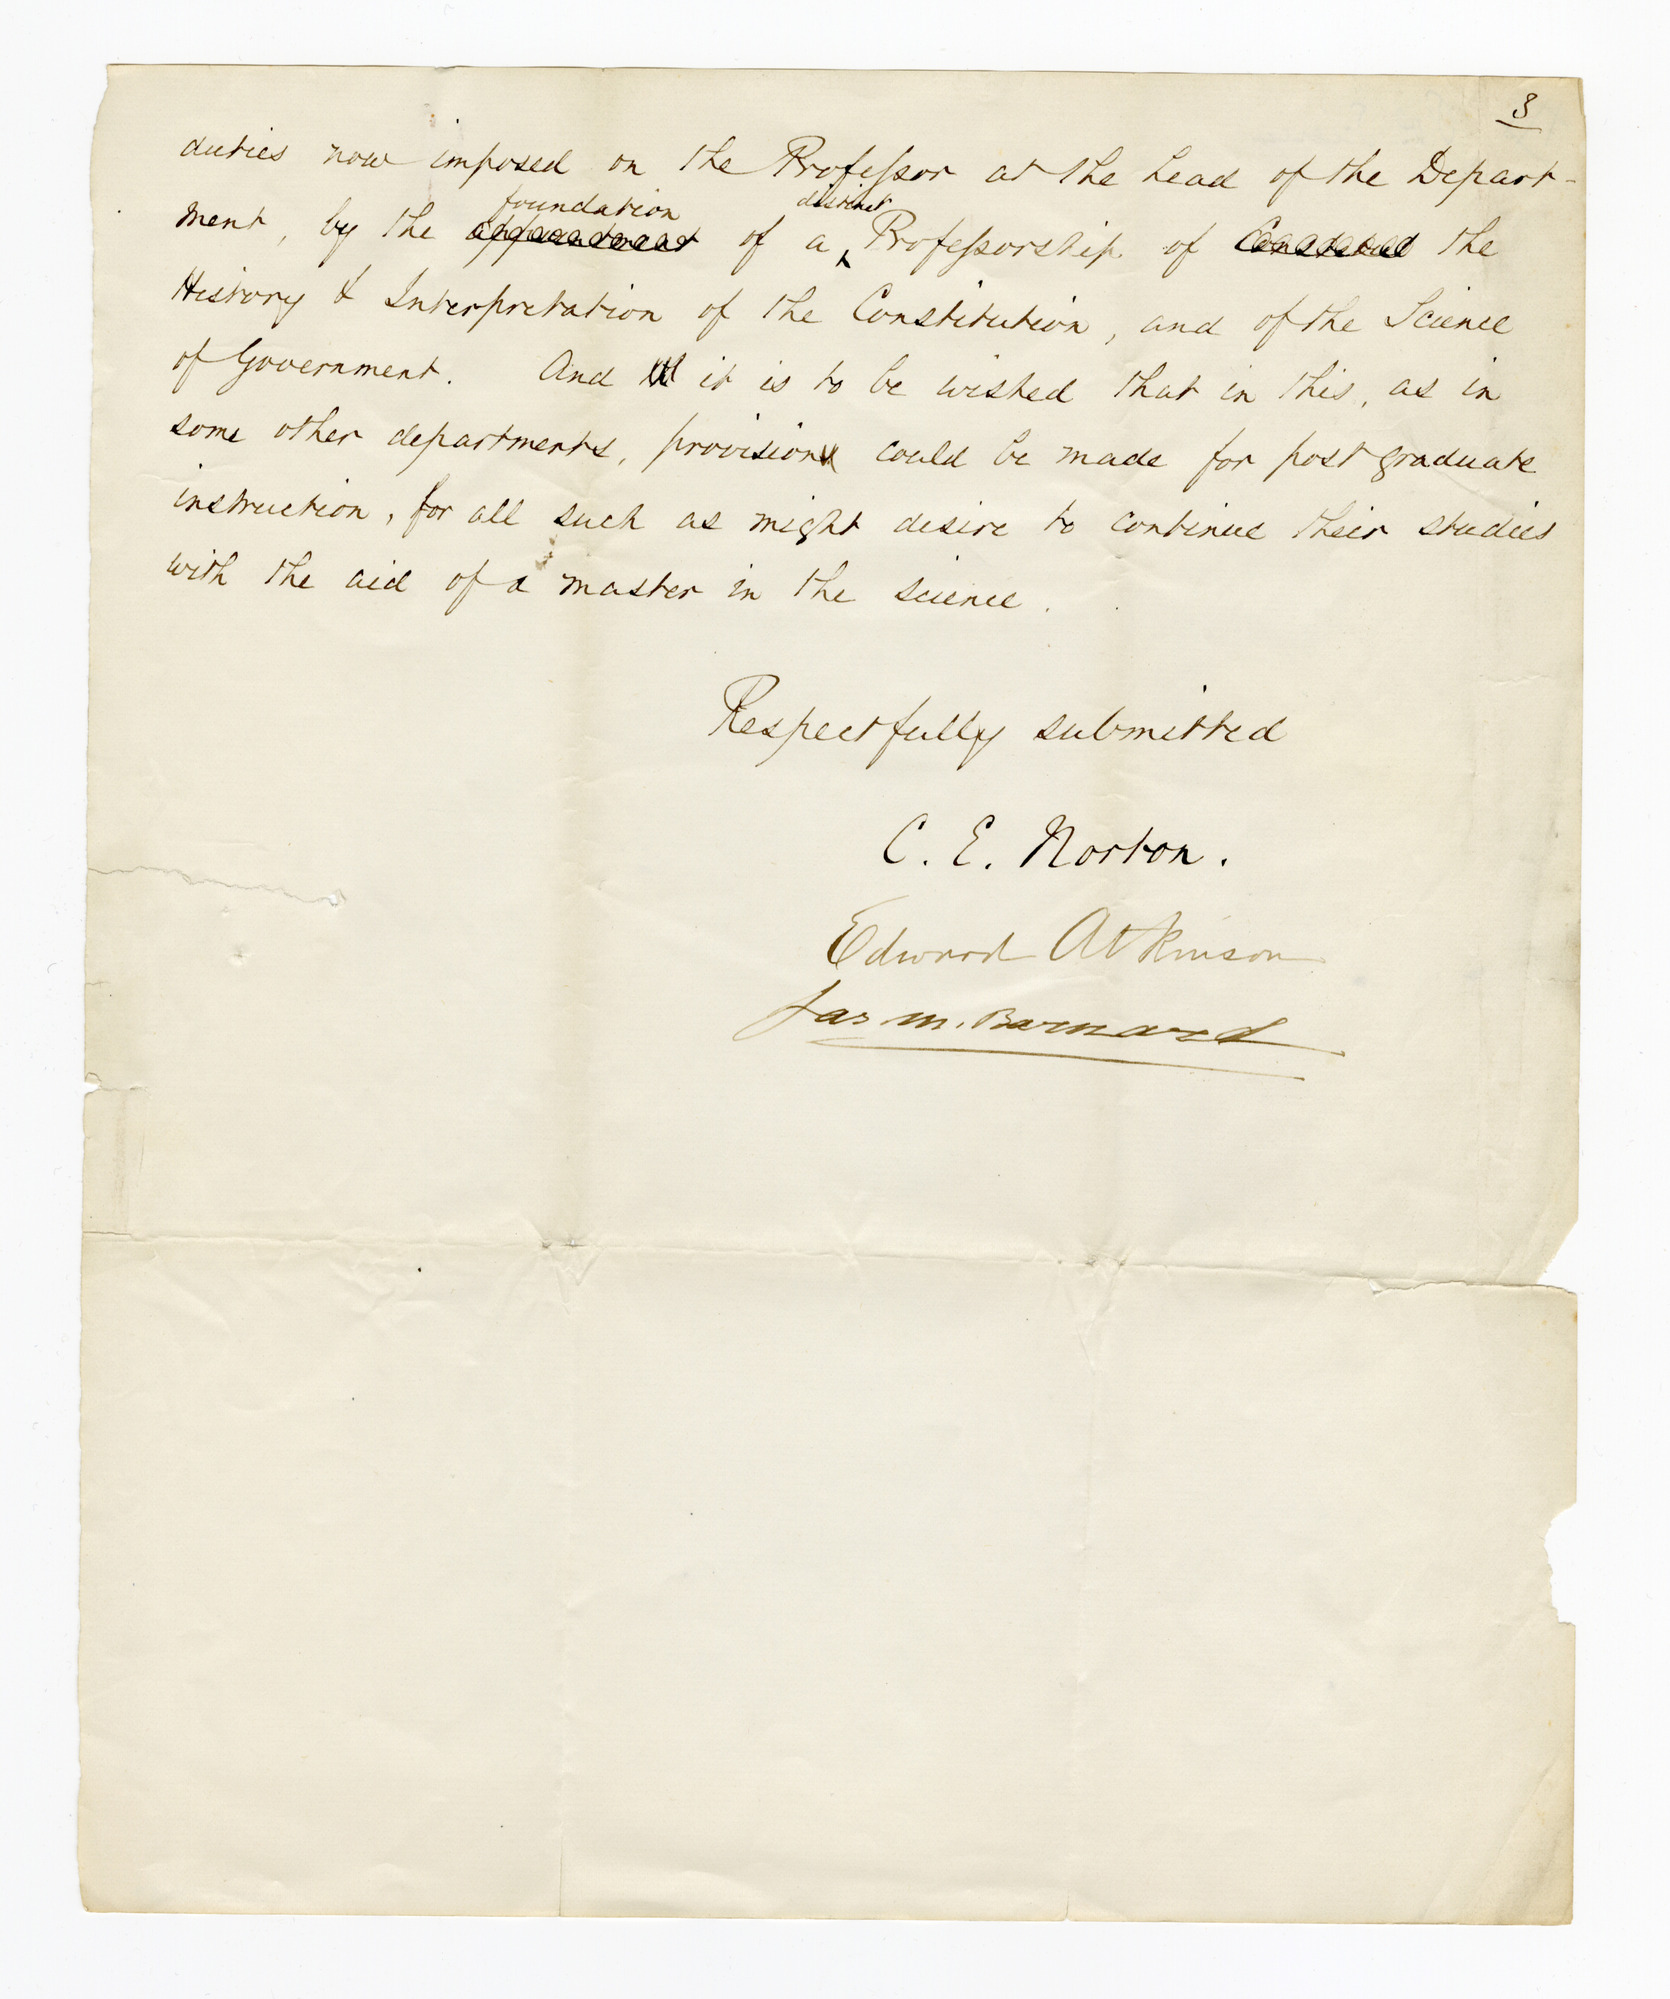 3
duties now imposed on the Professor at the head of the Depart-
foundation distinct
ment, by the appointment of a Professorship of the
History & Interpretation of the Constitution, and of the Science
of Government. And it is to be wished that in this, as in
some other departments, provision could be made for post graduate
instruction, for all such as might desire to continue their studies
with the aid of a master in the science.
Respectfully submitted
C. E. Norton.
Edward Atkinson
Jas M. Barnard